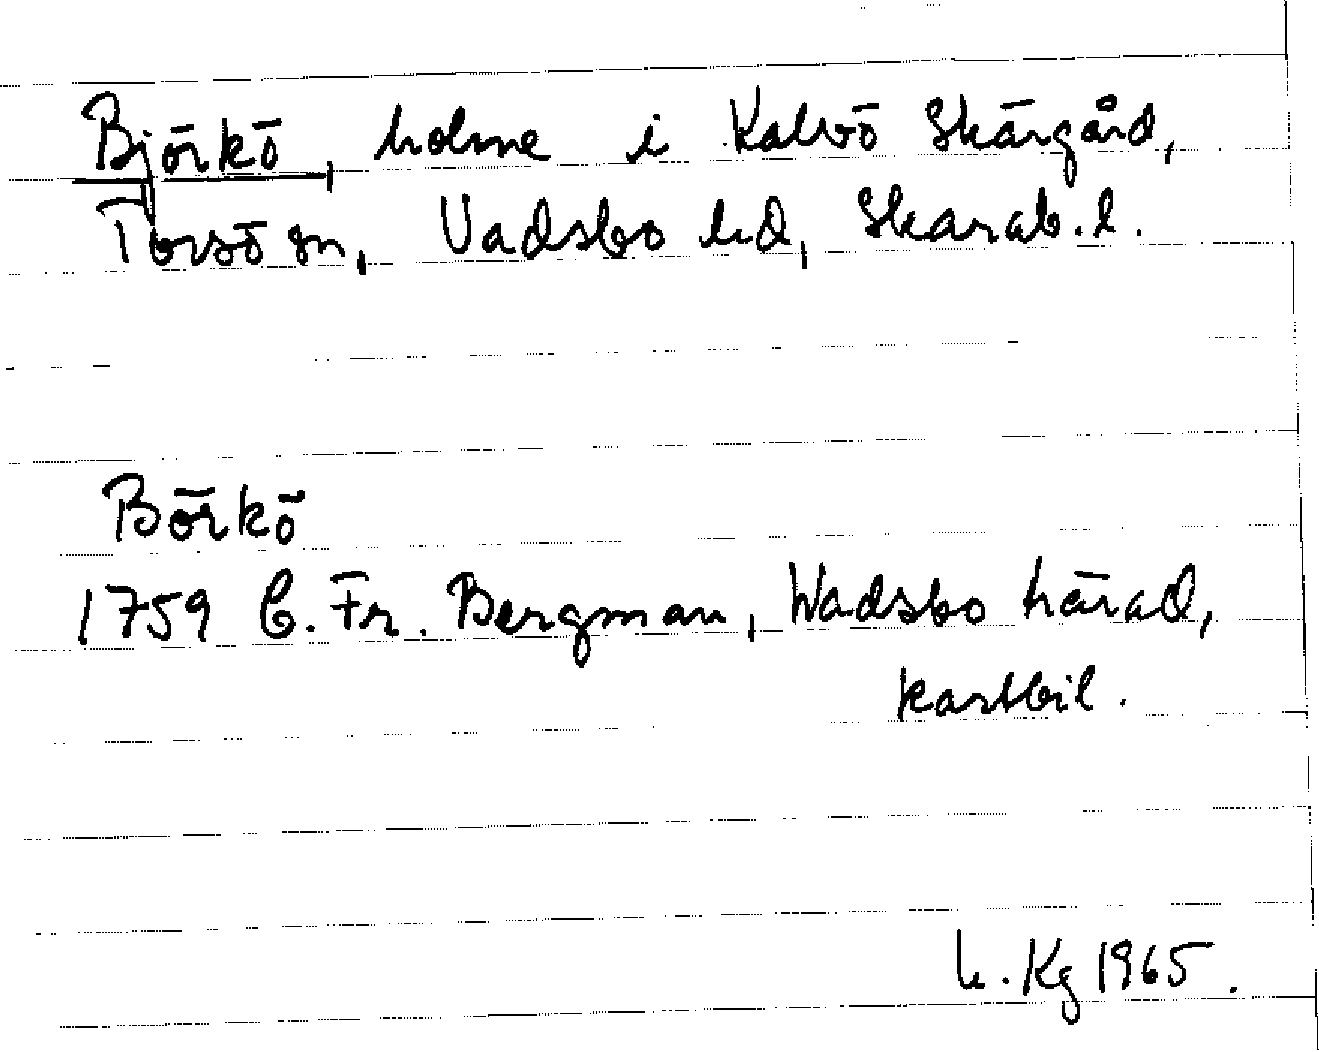 Björkö, holme i Kalvö skärgård,
Torsö sn, Vadsbo hd, Skarab. l.
Börkö
1759 C. Fr. Bergman, Wadsbo härad,
kartbil.
h. Kg 1965.